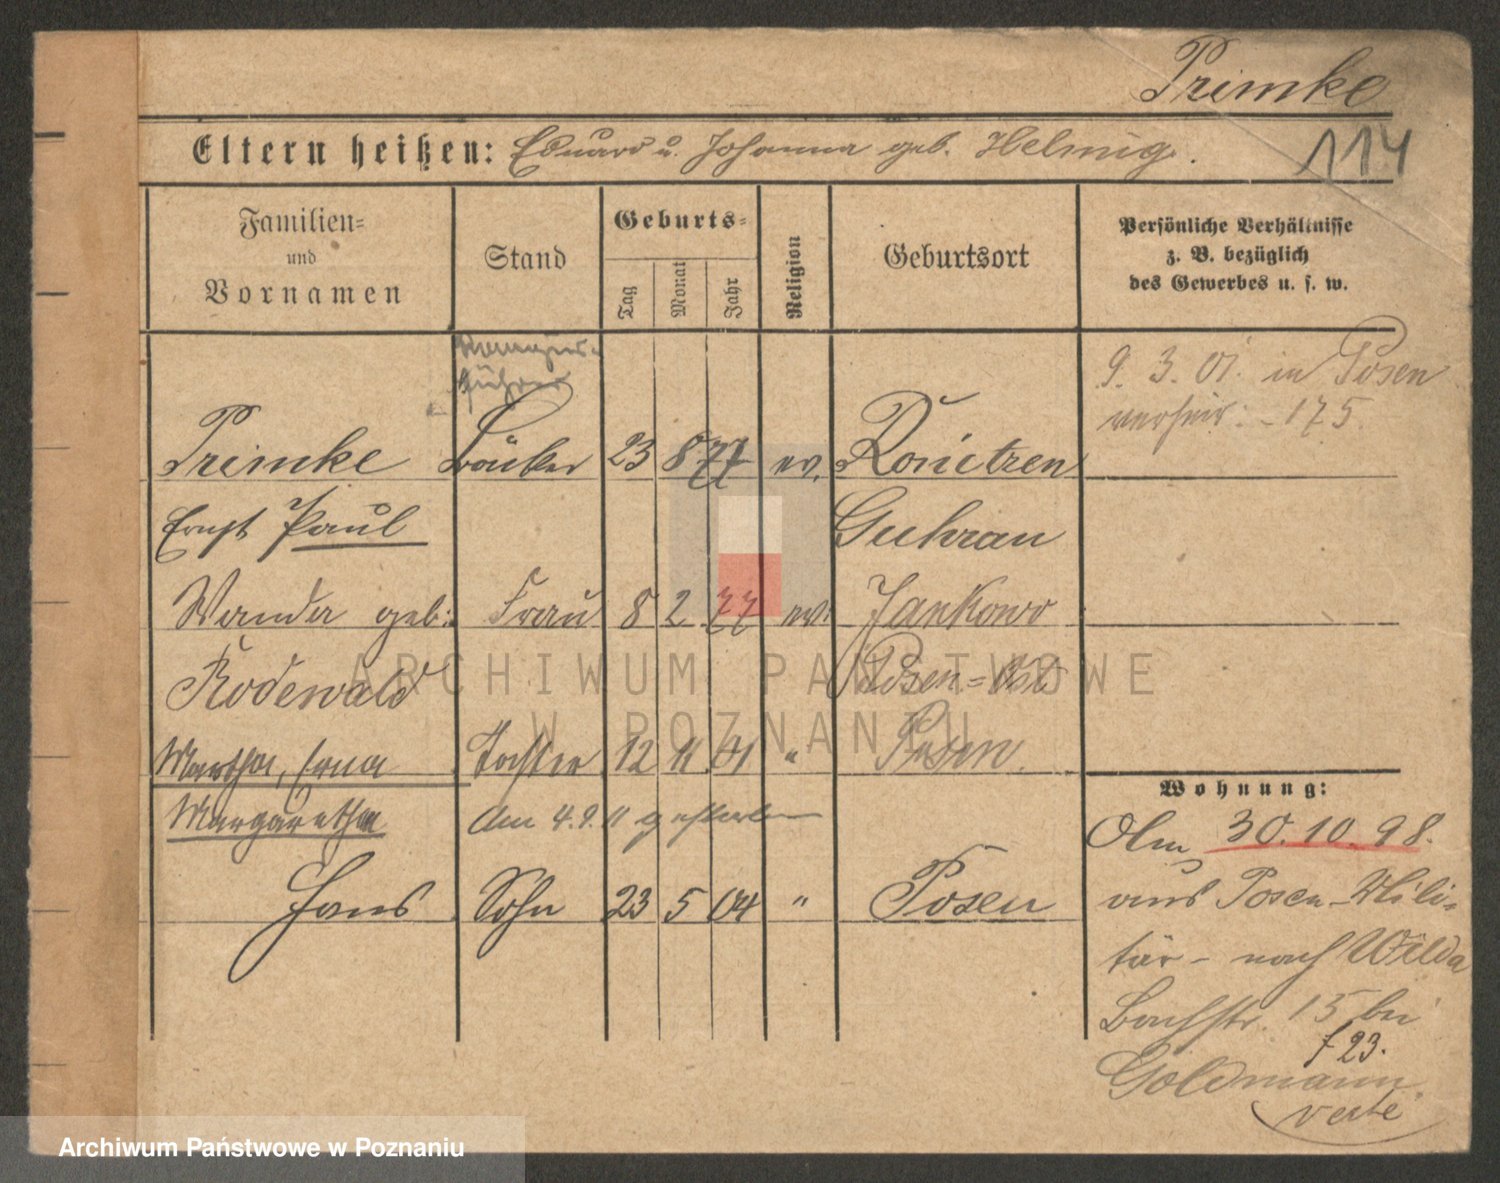 Primke
114
Eltern heißen: Eduard u. Johanna geb. Helmig.
Familien- und Vornamen
Stand
Geburts-
Tag
Monat
Jahr
Religion
Geburtsort
Persönliche Verhältnisse
z. B. bezüglich
des Gewerbes u. s. w.
führer
9. 3. 01. in Posen
verheir. - 175.
Primke 23 8 77 ev.
Ernst Paul Guhrau
Wanda geb. Frau 8 2 77 ev. Jankowo
Rodewald Posen-
Martha, Erna Tochter 12 11 01 " Posen.
Margarethe den 4.9. 11 gestorben
Hans Sohn 23 5 04 " Posen
Wohnung:
30.10.98.
aus Posen-Mili-
tär- nach Wilda
Bachstr. 15 bei
f 23.
Goldmann
verte
ARCHIWUM PAŃSTWOWE
W POZNANIU
Archiwum Państwowe w Poznaniu